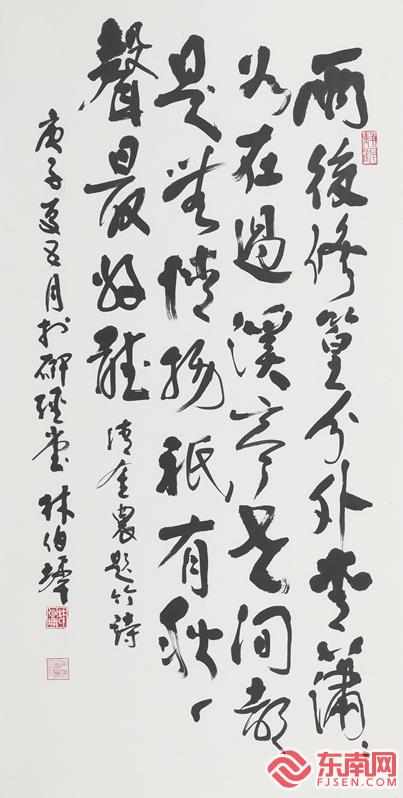 雨後修篁分外青蕭〻
如在過溪亭世間都
是無情物祇有秋
聲最好聽
清金農題竹詩
庚子夏五月於 堂 林伯
东南网
FJSEN.COM